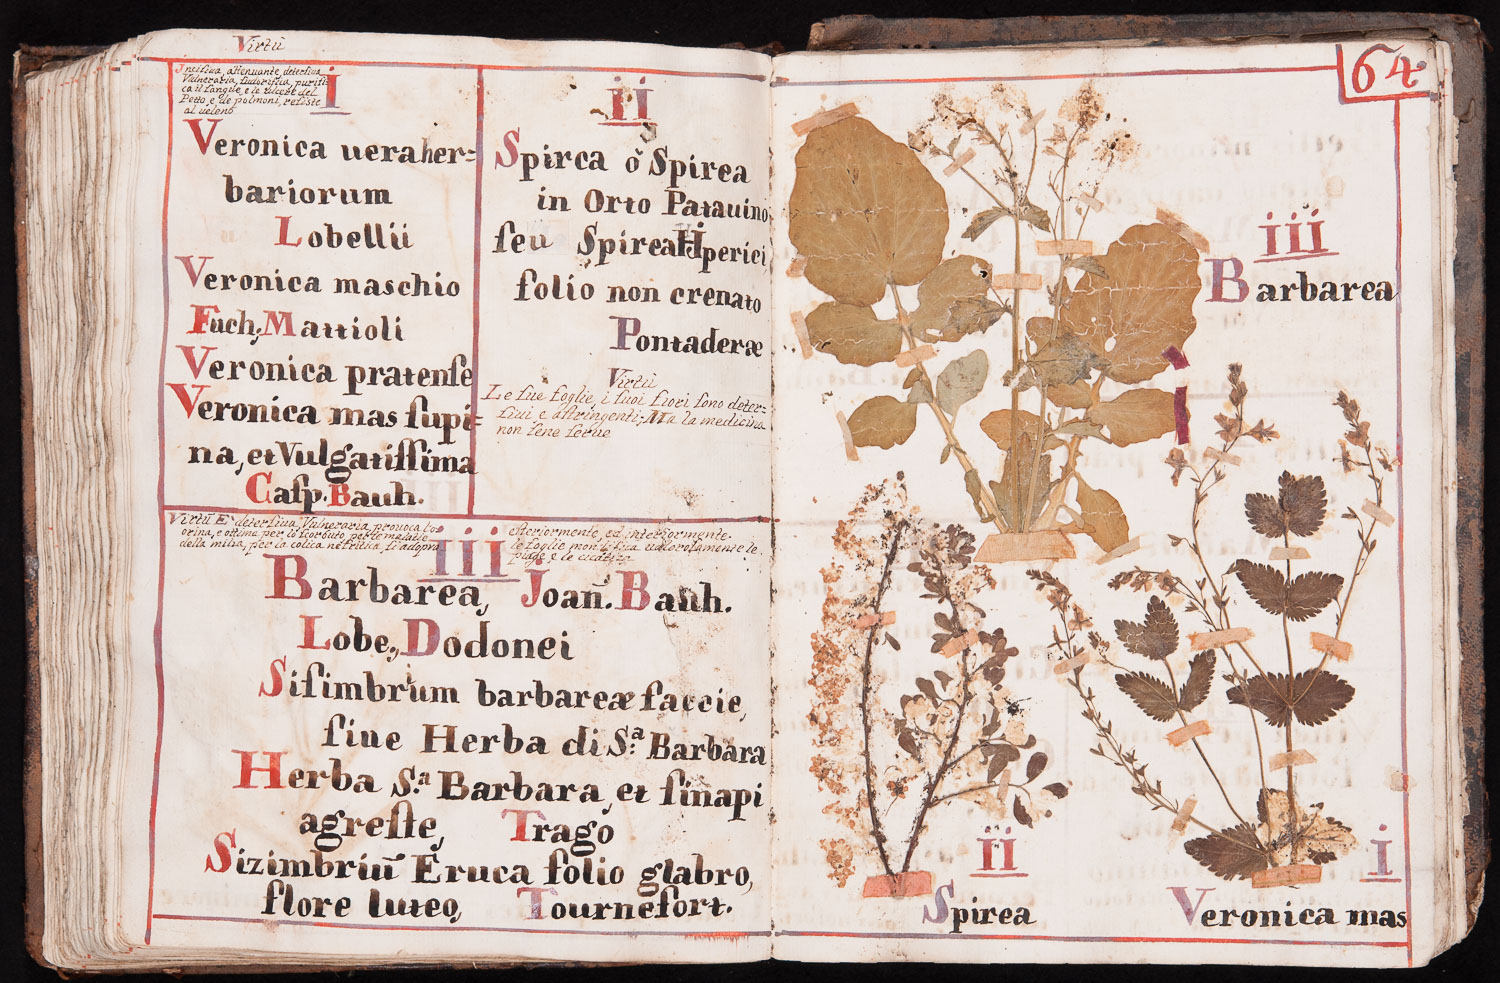 Virtù
Incisiua, attenuante, detersiua
Vulneraria, sudorifica, purifi-
ca il sangue, e le ulcere del
Petto, e de polmoni, resiste
al ueleno
i
Veronica uera her=
bariorum
Lobellii
Veronica maschio
Fuch, Mattioli
Veronica pratense
Veronica mas supi=
na, et Vulgatissima
Casp. Bauh.
ii
Spirea ò Spirea
in Orto Patauino
seu Spirea Hiperici
folio non crenato
Pontaderæ
Virtù
Le sue foglie, i suoi fiori sono deter=
siui e astringenti; Ma la medicina
non sene serue
Virtù E' detersiua, Vulneraria prouoca l'o=
orina, e ottima per lo scorbuto per le malatie
della milza, per la colica nefritica, si adopra
esteriormente, ed interiormente.
le foglie
piage e le
iii
Barbarea, Joan. Bauh.
Lobe., Dodonei
Sisimbrium barbareæ faccie,
siue Herba di S.a Barbara
Herba S.a Barbara, et sinapi
agreste, Trago
Sizimbriū Eruca folio glabro,
flore luteo, Tournefort.
64
iii
Barbarea
ii
Spirea
i
Veronica mas